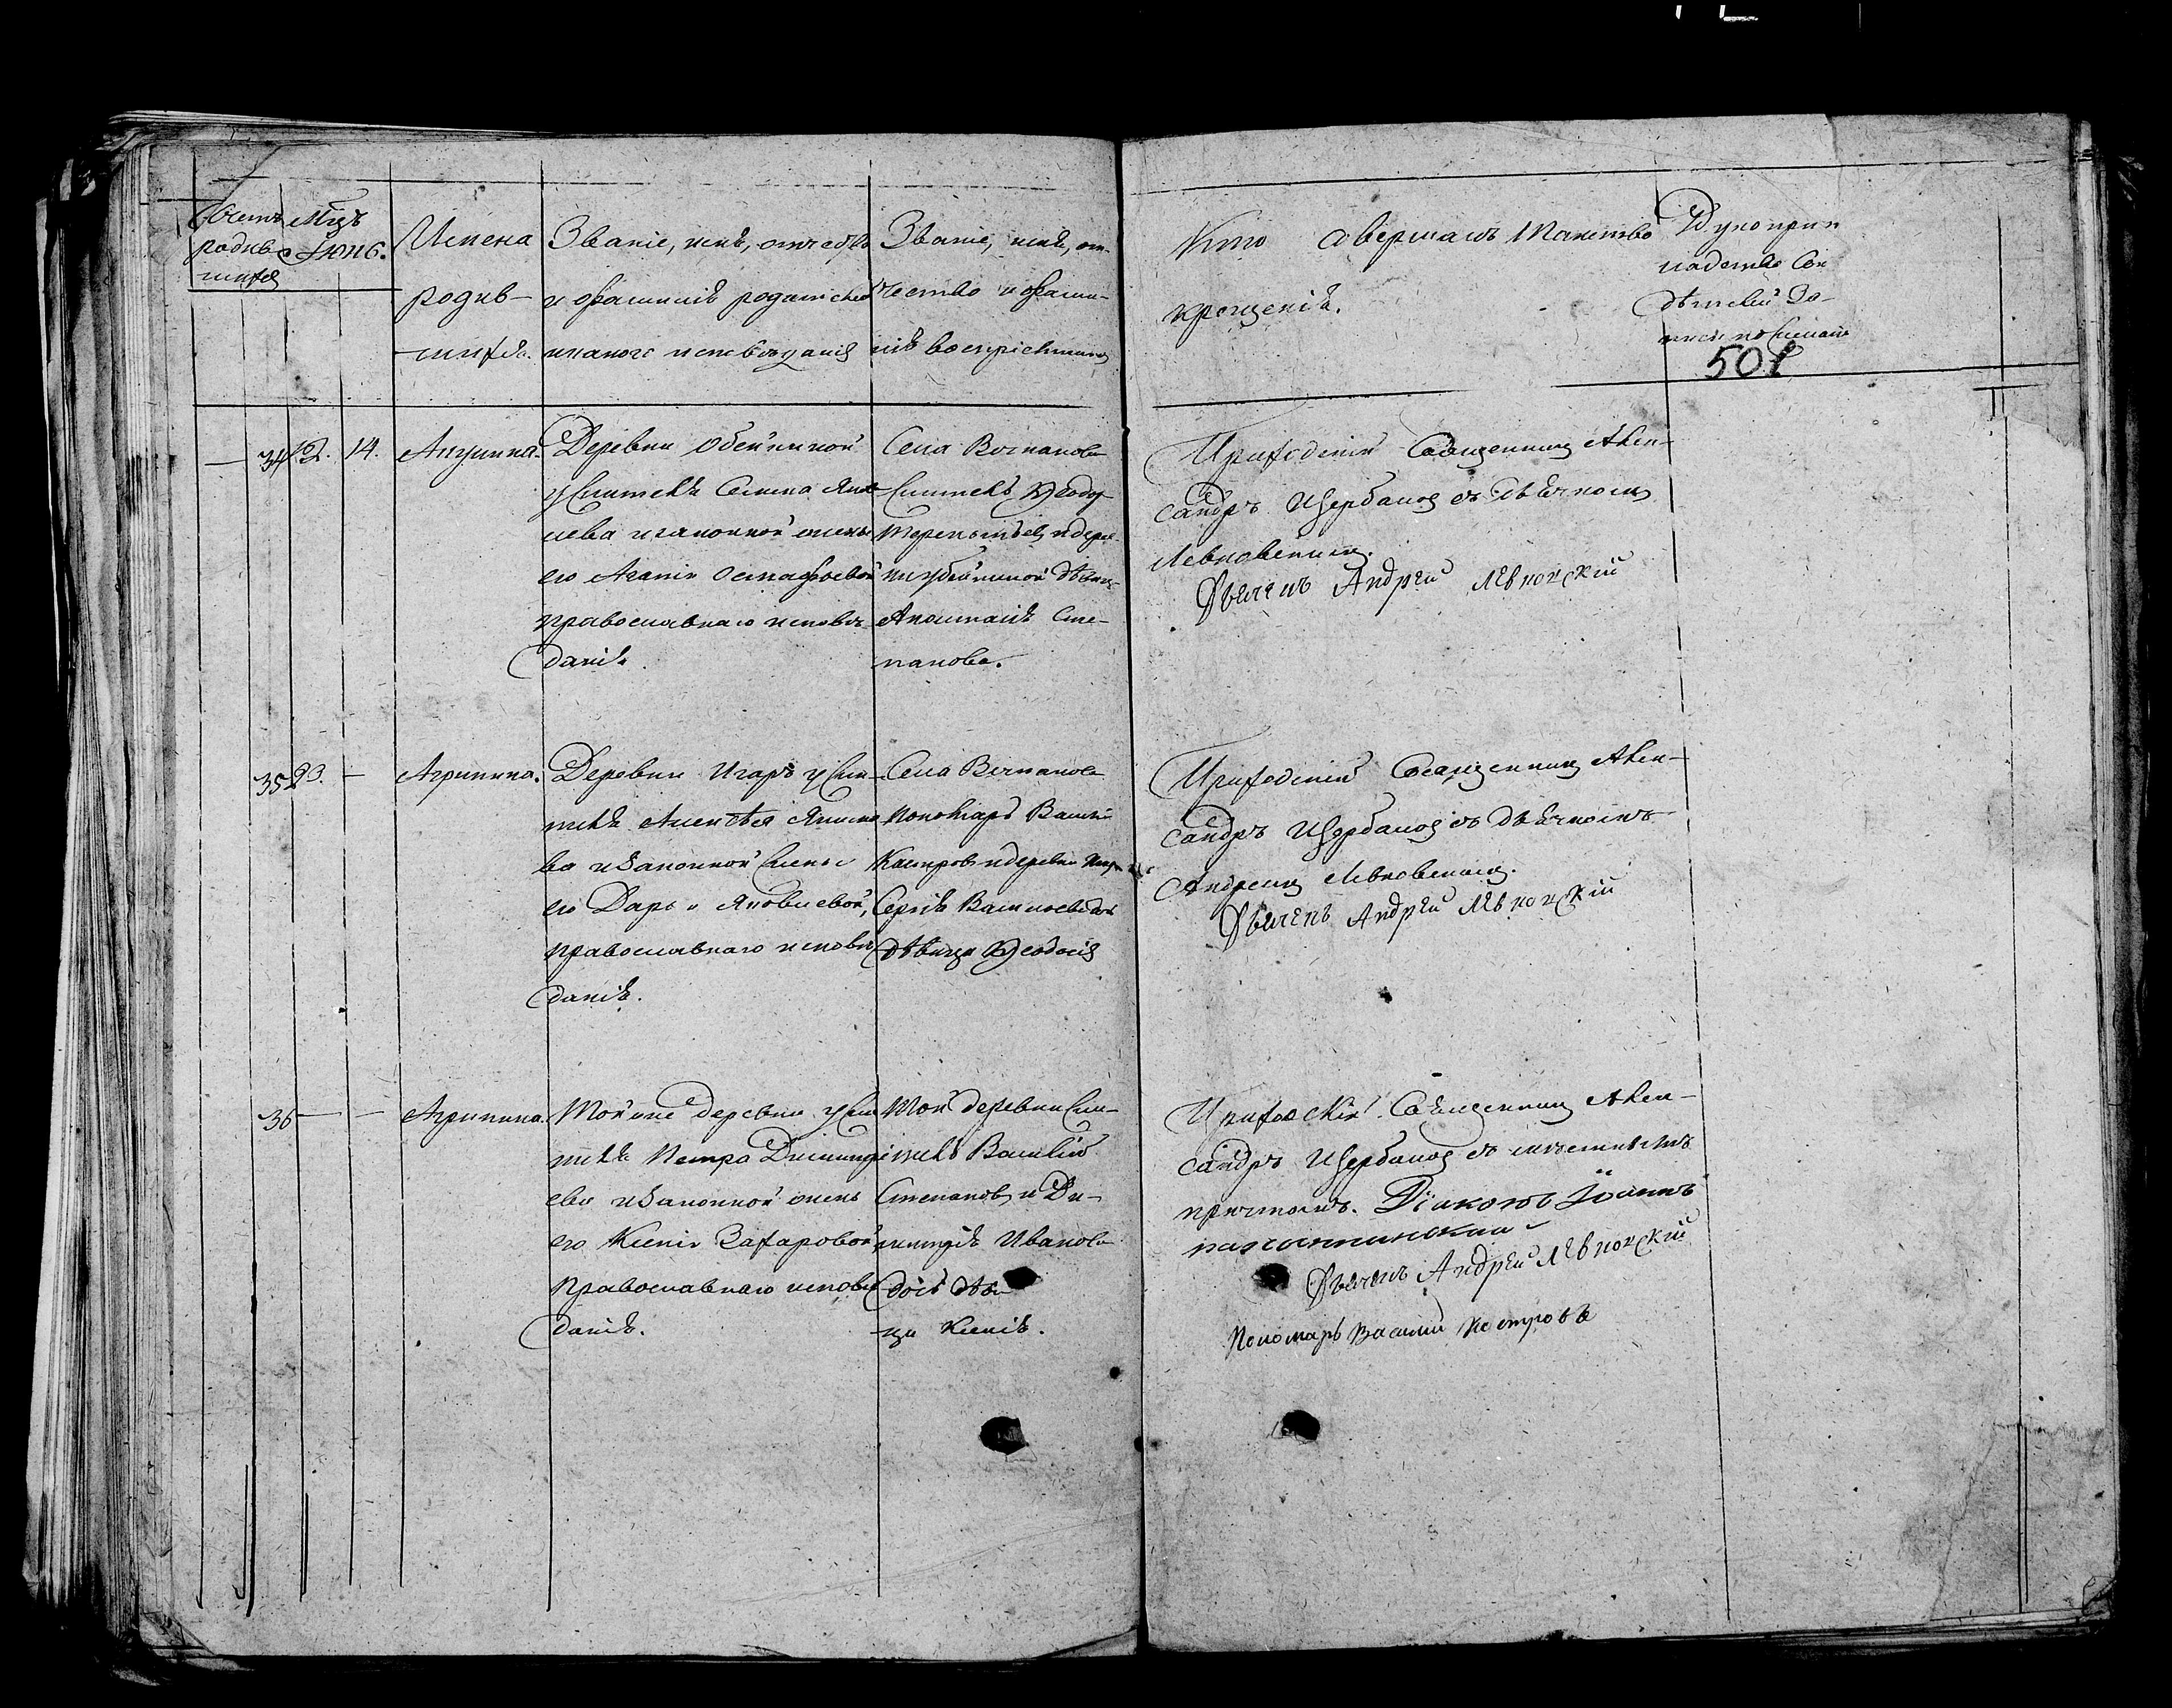 Счетъ Мцъ
родив Июнь.
шихся
Имена
родив-
шихся.
Званіе, имя, отчество
и фамилія родителей
и какого исповѣданія
Званіе, имя, от-
чество и фами-
лія воспріемниковъ
Кто совершалъ таинство
крещенія.
Рукопри
кладство Сви
дѣтелей За-
писи по желанію
501
34 12. 14. Акулина.
Деревни
жителя Семена Яков
лева и законной жены
его Агапіи Остафьевой
православнаго исповѣ-
данія.
Села
житель Ѳеодоръ
Терентьевъ и дерев
дѣвица
Анастасія Сте-
панова.
Приходскій Священникъ Алек-
сандръ Щербаковъ съ дьячкомъ
Левковскимъ.
Дьячекъ Андрей Левковскій
35 23. — Агрипина.
Деревни Игаръ жи-
теля Алексѣя Яким
ва и Законной жены
его Дарьи Яковлевой,
православнаго исповѣ
данія.
Села
Пономарь Василій
Костровъ и деревни Игаръ
Сергія Васильева дочь
дѣвица Ѳеодосія
Приходскій Священникъ Алек-
сандръ Щербаковъ съ дьячкомъ
Андреемъ Левковскимъ.
Дьячекъ Андрей Левковскій
36 — — Агрипина.
Той же деревни жи
теля Петра Димитрі
ева и Законной жены
его Ксеніи Захаровой
православнаго исповѣ
данія.
Той деревни жи-
тель Василій
Степановъ и Ди-
митрія Иванова
дочь дѣви-
ца Ксенія.
Приходскій Священникъ Алек-
сандръ Щербаковъ съ мѣстнымъ
причтомъ. Діаконъ Іоаннъ
Дьячекъ Андрей Левковскій
Пономарь Василій Костровъ